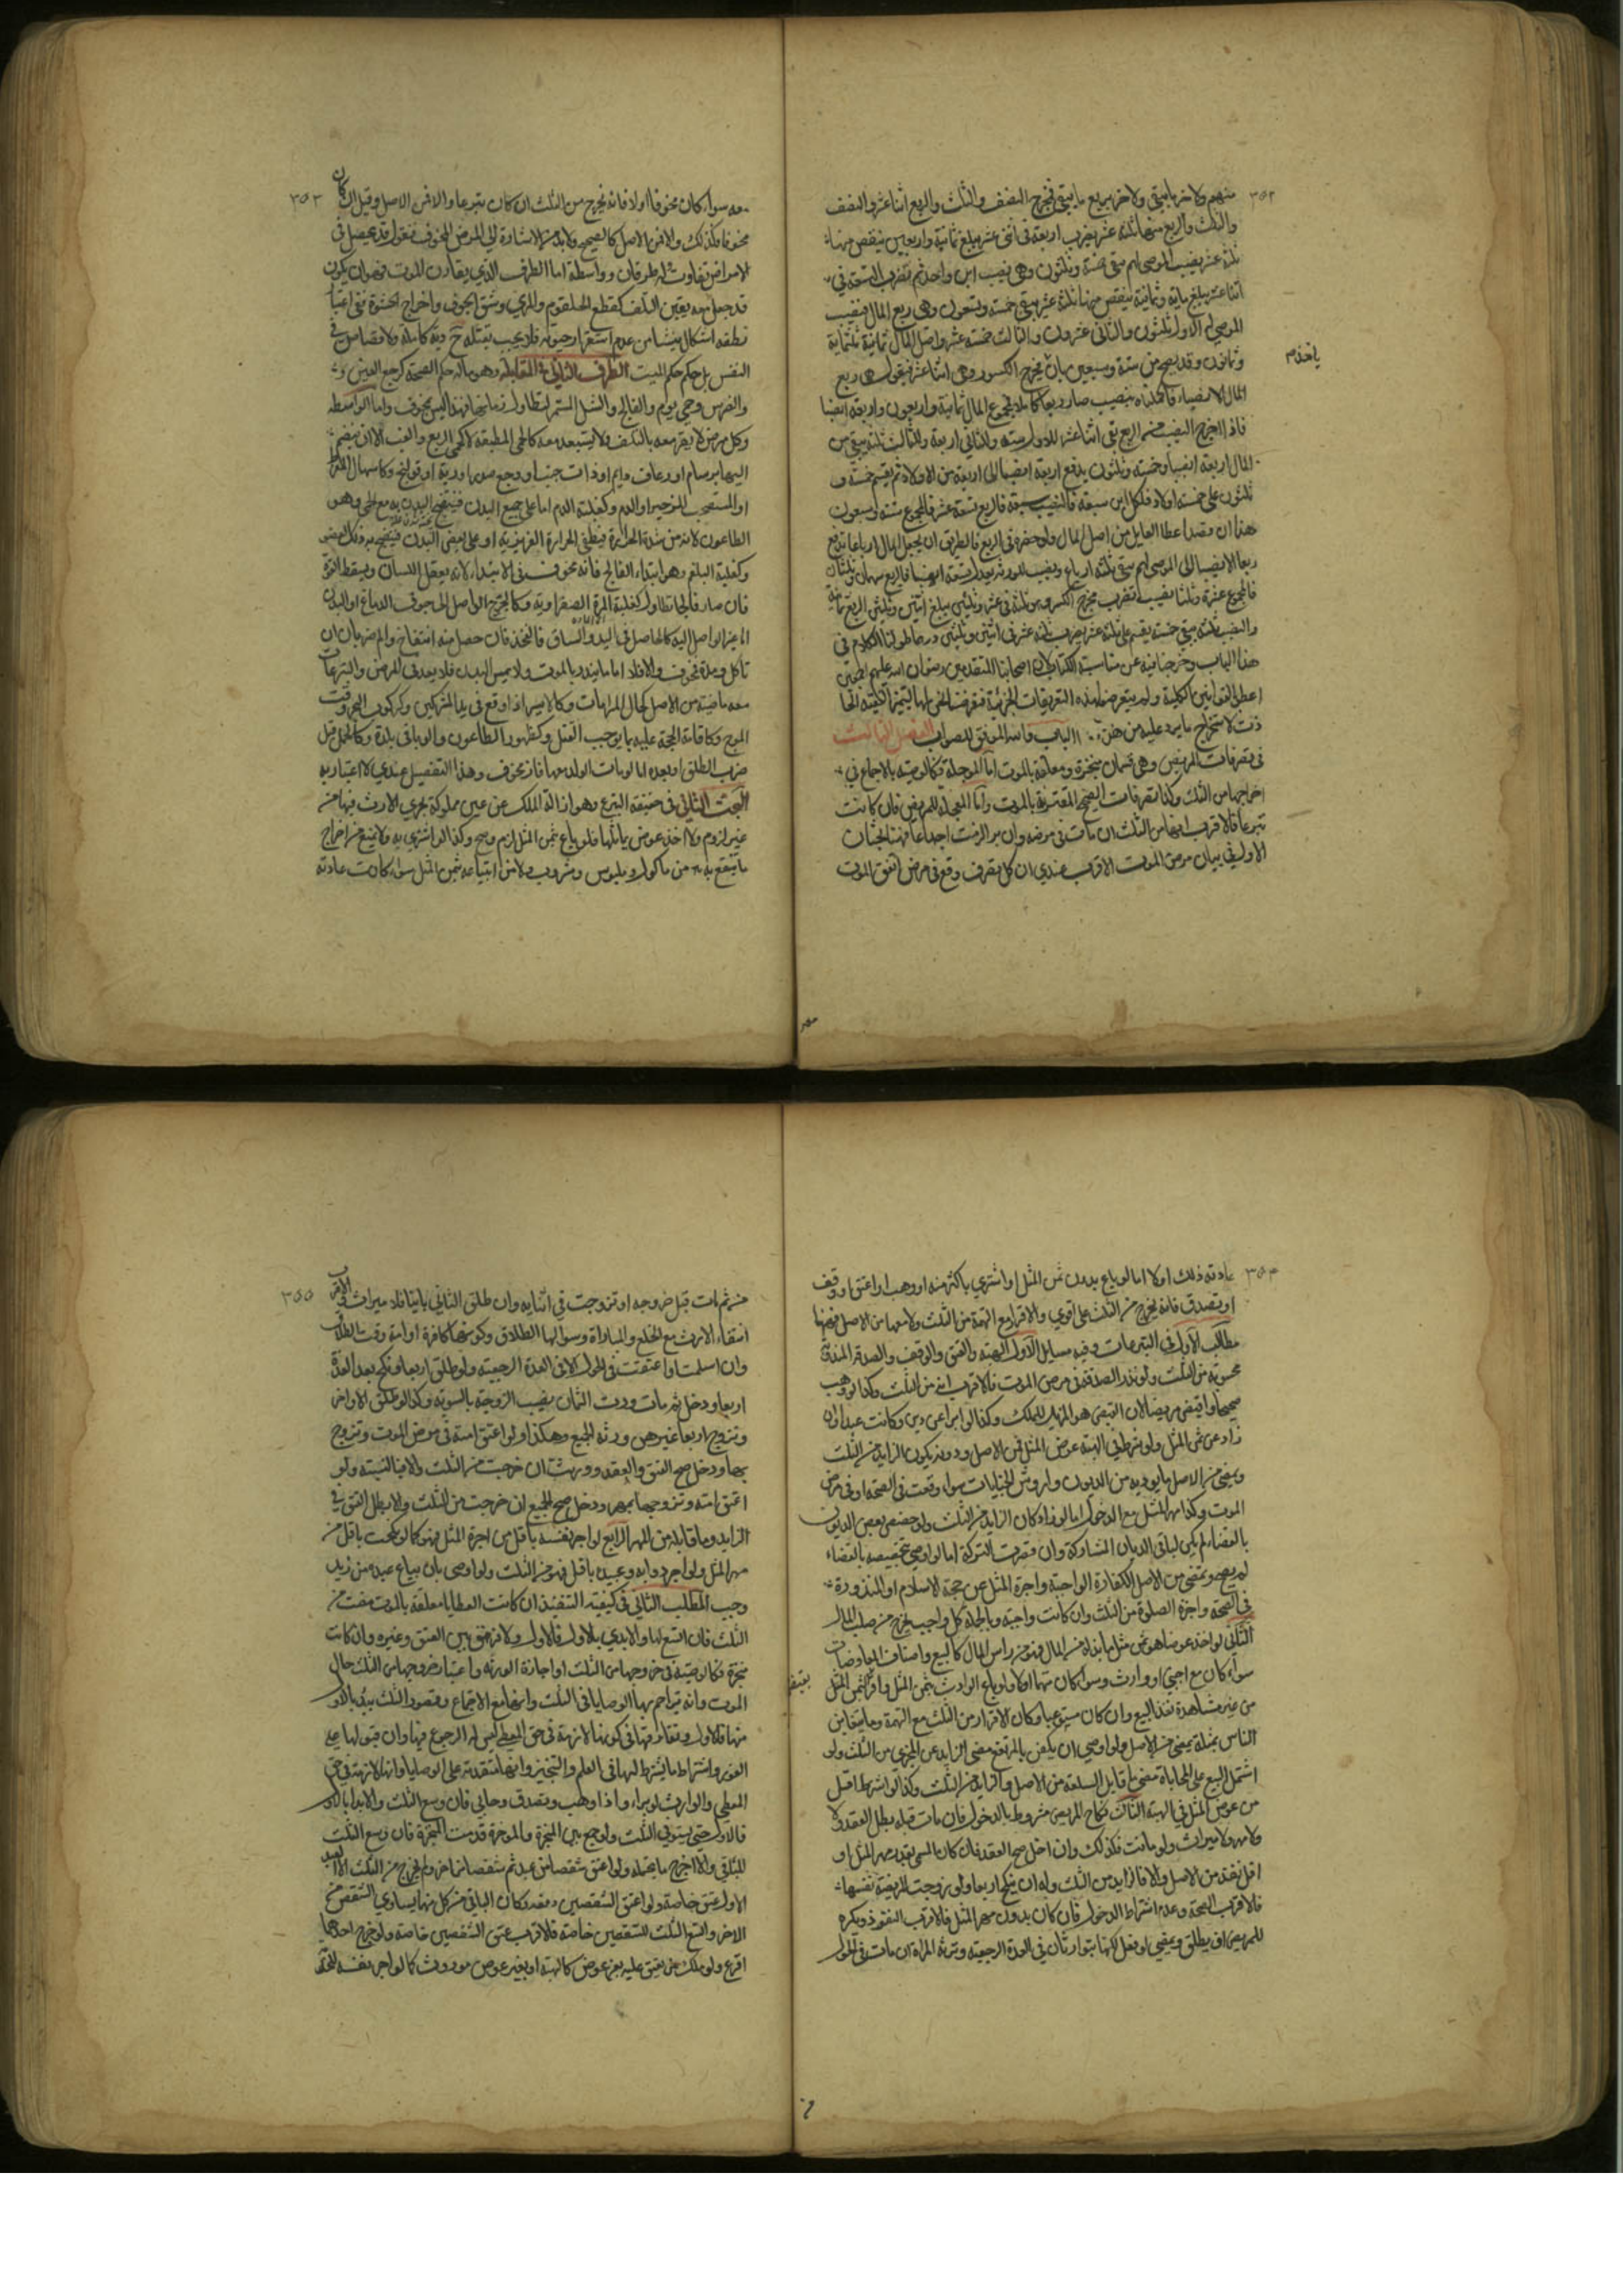 ٣٥٢
منهم ولاخر بما يبقى ولاخر بربع ما يبقى فمخرج النصف والثلث والربع اثنا عشر والنصف
والثلث والربع منها ثلثة عشر يضرب اربعة في اثنى عشر يبلغ ثمانية واربعين ينقص منها
ثلثة عشر نصيب الموصى لهم يبقى خمسة وثلثون وهي نصيب ابن واحد ثم تضرب التسعة في
اثنا عشر يبلغ ماية وثمانية ينقص منها ثلثة عشر يبقى خمسة وتسعون وهي ربع المال فنصيب
الموصى له الاول ثلثون والثاني عشرون والثالث خمسة عشر واصل المال ثمانية ثلثماية
وثمانون وقد يصح من ستة وسبعين بان مخرج الكسور وهي اثنا عشر فنقول هي ربع
المال الا نصيبا فاكملناه بنصيب صار ربعا كاملا فمجموع المال ثمانية واربعون واربعة انصبا
فاذا اخرج النصيب من الربع بقى اثنا عشر للاول ستة وللثاني اربعة وللثالث ثلثة يبقى من
المال اربعة انصبا وخمسة وثلثون يدفع اربعة انصبا الى اربعة من الاولاد ثم يقسم خمسة و
ثلثون على خمسة اولاد فلكل ابن سبعة فالنصيب سبعة فالربع تسعة عشر فالمجموع ستة وسبعون
هذا ان قصد اعطا القايل من اصل المال ولو حصره في الربع فالطريق ان يجعل المال ارباعا تدفع
ربعا الا نصيبا الى الموصى لهم يبقى ثلثة ارباع ونصيب للورثة
فالمجموع عشرة وثلثا نصيب تضرب مخرج الكسر وهو ثلثة في عشرة وثلثين يبلغ اثنين وثلثين الربع ثمانية
والنصيب ثلثة يبقى خمسة يقسم على ثلثة عشر يضرب ثلثة عشر في اثنين وثلثين وربما طولنا الكلام في
هذا الباب وخرجنا فيه عن مناسبة الكتاب لان اصحابنا المتقدمين رضوان الله عليهم اجمعين
اعطوا القوانين الكلية ولم يتعرضوا لهذه التفريعات الجزئية
ذت لاستخراج ما يرد عليه من هذا الباب والله الموفق للصواب الفصل الثالث
في تصرفات المريض وهي قسمان منجزة ومعلقة بالموت اما الموجلة فكالوصية بالاجماع في
اخراجها من الثلث وكذا تصرفات الصحيح المقترنة بالموت واما المعجلة للمريض فان كانت
تبرعا فالاقرب انها من الثلث ان مات في مرضه وان برا لزمت اجماعا فهنا بحثان
الاول في بيان مرض الموت الاقرب عندي ان كل تصرف وقع في مرض اتفق الموت
٣٥٣
معه سواء كان مخوفا او لا فانه يخرج من الثلث ان كان تبرعا والا فمن الاصل وقيل ان كان
مخوفا فكذلك والا فمن الاصل كالصحيح ولابد من الاشارة الى المرض المخوف فنقول قد يحصل في
الامراض تفاوت له طرفان وواسطة اما الطرف الذي يقارن الموت فهو ان يكون
قد حصل معه يقين التلف كقطع الحلقوم والمري وشق الجوف واخراج الحشوة ففي اعتبار
نطقه اشكال ينشا من عدم استقرار حيوته فلا يجب بقتله ح دية كاملة ولا قصاص في
النفس بل حكمه حكم الميت الطرف الثاني المقابلة وهو ما له حكم الصحة كوجع العين و
والضرس وحمى يوم والفالج والسل المستمر لتطاول زمانهما فهذا ليس بمخوف واما الواسطة
وكل مرض لا يقر معه بالتلف ولا يستبعد معه كالحمى المطبقة لا كحمى الربع والغب الا ان ينضم
اليهما برسام او رعاف دايم او ذات جنب او وجع صدر او رية او قولنج وكاسهال المفرط
او المستصحب للزحير او الدم وكغلبة الدم اما على جميع البدن فينتفخ البدن به مع الحمى وهو
الطاعون لانه من شدة الحرارة فيطفي الحرارة الغريزية او على بعض البدن فينتفخ به ذلك العضو
وكغلبة البلغم وهو ابتداء الفالج فانه مخوف في الابتداء لانه يعقل اللسان ويسقط القوة
فان صار فالجا تطاول كغلبة المرة الصفراوية وكالجرح الواصل الى جوف الدماغ او البدن
اما غير الواصل اليه كالحاصل في اليد والساق فالفخذ فان حصل منه انتفاخ والم ضربان او
تاكل ومدة فمخوف والا فلا اما ما ينذر بالموت ولا يمس البدن فلا يعد في المرض والتبرعات
معه ماضية من الاصل كحال المراماة وكالاسير اذا وقع في يد المشركين وكركوب البحر وقت
الموج وكاقامة الحجة عليه بما يوجب القتل وكظهور الطاعون والوبا في بلده وكالحامل قبل
ضرب الطلق او بعده اما لو مات الولد معها فانه مخوف وهذا التفصيل عندي لا اعتبار به
البحث الثاني في حقيقة التبرع وهو ازالة الملك عن عين مملوكة يجري الارث فيها من
غير لزوم ولا اخذ عوض يماثلها فلو باع بثمن المثل لزم وصح وكذا لو اشترى به ولا يمنع من اخراج
ما ينتفع به من ماكول وملبوس ومشروب ولا من ابتياعه بثمن المثل سواء كانت عادته
٣٥٤
عادته ذلك او لا اما لو باع بدون ثمن المثل او اشترى باكثر منه او وهب او اعتق او وقف
او تصدق فانه يخرج من الثلث على اقوى والاقرار مع التهمة من الثلث ولا معها من الاصل فهنا
مطالب الاول في التبرعات وفيه مسايل الاول الهبة والعتق والوقف والصدقة المندوبة
محسوبة من الثلث ولو نذر الصدقة في مرض الموت فالاقرب انه من الثلث وكذا لو وهب
صحيحا واقبض مريضا لان القبض هو المزيل للملك وكذا لو ابرا عن دين وكانت عبدا وان
زاد عن ثمن المثل ولو شرط في الهبة عوض المثل فمن الاصل ودونه يكون الزايد من الثلث
ويمضي من الاصل ما يوديه من الديون واروش الجنايات سواء وقعت في الصحة او في مرض
الموت وكذا مهر المثل مع الدخول اما لو زاد كان الزايد من الثلث ولو خصص بعض الديون
بالقضاء لم يكن لباقي الديان المشاركة وان قصرت التركة اما لو اوصى بتخصيصه بالقضاء
لم يصح ويمضي من الاصل الكفارة الواجبة واجرة المثل عن حجة الاسلام او المنذورة
في الصحة واجرة الصلوة من الثلث وان كانت واجبة وبالجملة كل واجب يخرج من صلب المال
الثاني لو اخذ عوضا هو ثمن مثل ما بذله من المال فهو من راس المال كالبيع واصناف المعاوضات
سواء كان مع اجنبي او وارث وسواء كان متهما او لا ولو باع الوارث بثمن المثل واقر بثمن المثل
من غير مشاهدة نفذ البيع وان كان مستوعبا وكان الاقرار من الثلث مع التهمة وما يتغابن
الناس بمثله يمضي من الاصل ولو اوصى ان يكفن بالمرتفع مضى الزايد عن المجزي من الثلث ولو
اشتمل البيع على المحاباة مضى ما قابل السلعة من الاصل والزايد من الثلث وكذا لو اشترط اقل
من عوض المثل في الهبة الثالث نكاح المريض مشروط بالدخول فان مات قبله بطل العقد ولا
ولا مهر ولا ميراث ولو ماتت فكذلك وان دخل صح العقد فان كان المسمى بقدر مهر المثل او
اقل نفذ من الاصل والا فالزايد من الثلث وله ان ينكح اربعا ولو زوجت المريضة نفسها
فالاقرب الصحة وعدم اشتراط الدخول فان كان بدون مهر المثل فالاقرب النفوذ ويكره
للمريض ان يطلق ويمضي لو فعل لكنهما يتوارثان في العدة الرجعية وترثه المراة ان مات في الحول
٣٥٥
من ثم مات قبل خروجه او تزوجت في اثنايه وان طلق الثاني باينا فلا ميراث والاقرب
انتفاء الارث مع الخلع والمباراة وسوالها الطلاق وكونها كافرة او امة وقت الطلاق
وان اسلمت او اعتقت في الحول الا في العدة الرجعية ولو طلق اربعا ونكح بعد العدة
اربعا ودخل ثم مات ورث الثمان نصيب الزوجة بالسوية وكذا لو طلق الاواخر
وتزوج اربعا غيرهن ورثه الجميع وهكذا ولو اعتق امته في مرض الموت وتزوج
بها ودخل صح العتق والعقد وورثت ان خرجت من الثلث والا فبالنسبة ولو
اعتق امته وتزوجها بمهر ودخل صح الجميع ان خرجت من الثلث والا بطل العتق في
الزايد وما قابله من المهر الرابع لو اجر نفسه باقل من اجرة المثل فهو كما لو نكحت باقل من
مهر المثل ولو اجر دوابه وعبيده باقل فهو من الثلث ولو اوصى بان يباع عبده من زيد
وجب المطلب الثاني في كيفية التنفيذ ان كانت العطايا معلقة بالموت مضت من
الثلث فان اتسع لها والا بدي بالاول فالاول ولا فرق بين العتق وغيره وان كانت
منجزة فكالوصية في خروجها من الثلث او اجازة الورثة واعتبار خروجها من الثلث حال
الموت وانه يزاحم بها الوصايا في الثلث وانها مع الاجتماع وقصور الثلث يبدا بالاول
منها فالاول وتفارقها في كونها لازمة في حق المعطي ليس له الرجوع فيها وان قبولها على
الفور واشتراط ما يشترط لها في العلم والتنجيز وانها متقدمة على الوصايا وانها لازمة في حق
المعطي والوارث لو برا واذا وهب وتصدق وحابى فان وسع الثلث والا بدا بالاول
فالاول حتى يستوفى الثلث ولو جمع بين المنجزة والموخرة قدمت المنجزة فان وسع الثلث
للباقي والا اخرج ما يحتمله ولو اعتق شقصا من عبد ثم شقصا من اخر ولم يخرج من الثلث الا العبد
الاول عتق خاصة ولو اعتق الشقصين دفعة وكان الباقي من كل منهما يساوي الشقص من
الاخر واتسع الثلث للشقصين خاصة فالاقرب عتق الشقصين خاصة ولو خرج احدهما
اقرع ولو ملك من يعتق عليه بغير عوض كالهبة او بغير عوض موروث كما لو اجر نفسه للخدمة